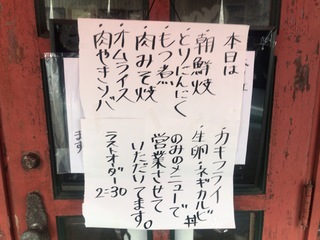 本日は
・朝鮮焼
・とりにんにく
・もつ煮
・肉みそ焼
・オムライス
・肉やきソバ
カキフライ
・生卵・ネギカルビ丼
のみのメニューで
営業させて
いただいてます。
ラストオーダー
2:30
ます